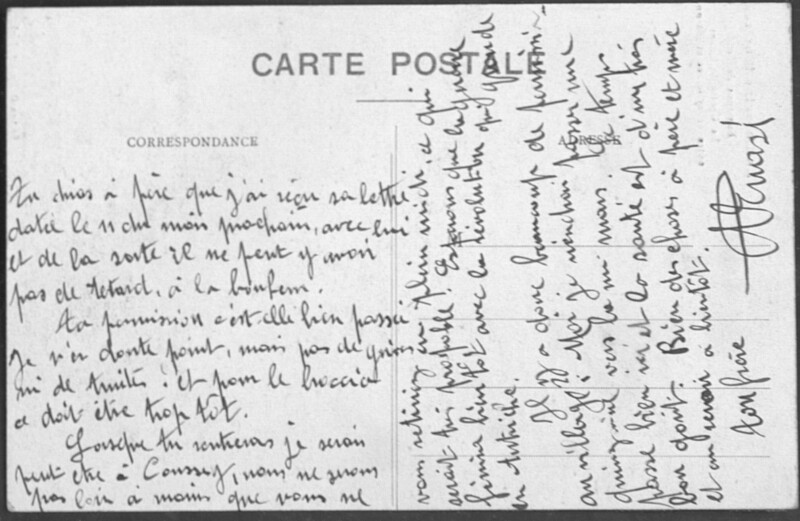 CARTE POSTALE
CORRESPONDANCE
ADRESSE
Tu diras à père que j'ai reçu sa lettre
datée le 11 du mois prochain, avec lui
et de la sorte il ne peut y avoir
pas de retard, à la bonheur.
Ta permission s'est elle bien passée
Je n'en doute point, mais pas de grives
ni de truites : et pour le
ce doit être trop tôt.
Lorsque tu rentreras je serai
peut etre à Coussey, nous ne serons
pas loin à moins que vous ne
vous retiriez en plein midi, ce qui
serait très probable. Espérons que la guerre
finira bientôt avec la révolution qui gronde
en Autriche.
Il y a donc beaucoup de permission-
au village : Moi je viendrai passer une
quinzaine vers la mi mars. Le temps
passe bien ici et la santé est d'un très
bon dont. Bien des choses à père et mère
et au revoir à bientôt.
ton frère